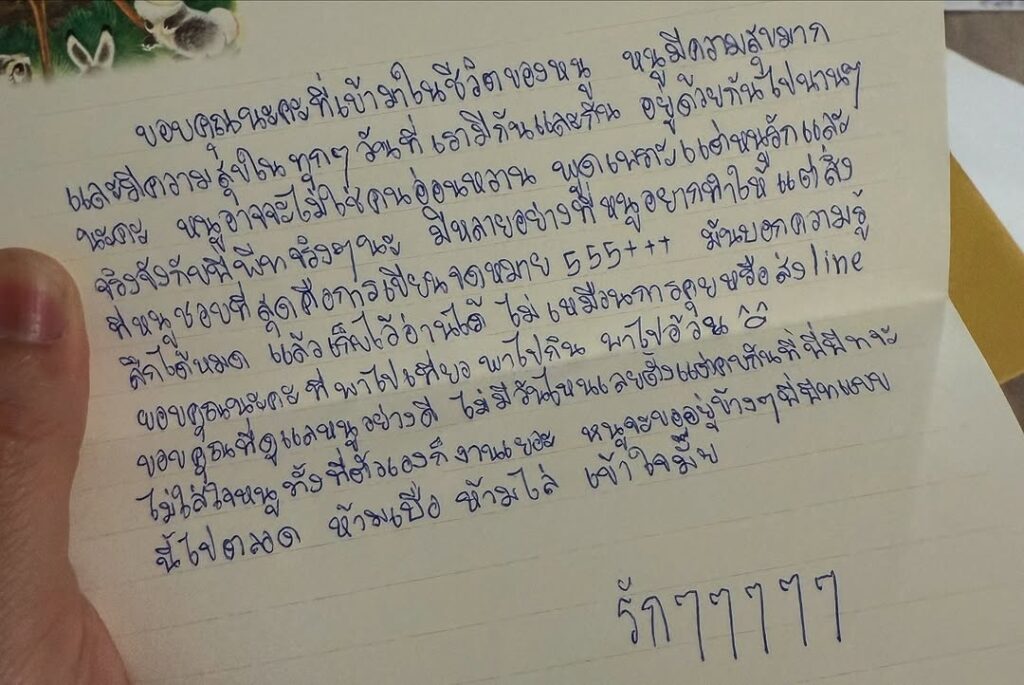 ขอบคุณนะคะที่เข้ามาในชีวิตของหนู หนูมีความสุขมาก
และมีความสุขในทุกๆ วันที่ เรามีกันและกัน อยู่ด้วยกันไปนานๆ
นะคะ หนูอาจจะไม่ใช่คนอ่อนหวาน พูดเพราะแต่หนูรักและ
จริงจังกับพี่พีทจริงๆนะ มีหลายอย่างที่หนูอยากทำให้ แต่สิ่ง
ที่หนูชอบที่สุดคือการเขียนจดหมาย 555+++ มันบอกความรู้
สึกได้หมด แล้วเก็บไว้อ่านได้ ไม่เหมือนการคุยหรือส่ง line
ขอบคุณนะคะที่พาไปเที่ยว พาไปกิน พาไปอ้วน
ขอบคุณที่ดูแลหนูอย่างดี ไม่มีวันไหนเลยตั้งแต่คบกันที่พี่พีทจะ
ไม่ใส่ใจหนู ทั้งที่ตัวเองก็งานเยอะ หนูจะขออยู่ข้างๆพี่พีทแบบ
นี้ไปตลอด ห้ามเบื่อ ห้ามไล่ เข้าใจมั๊ย
รักๆๆๆๆๆ